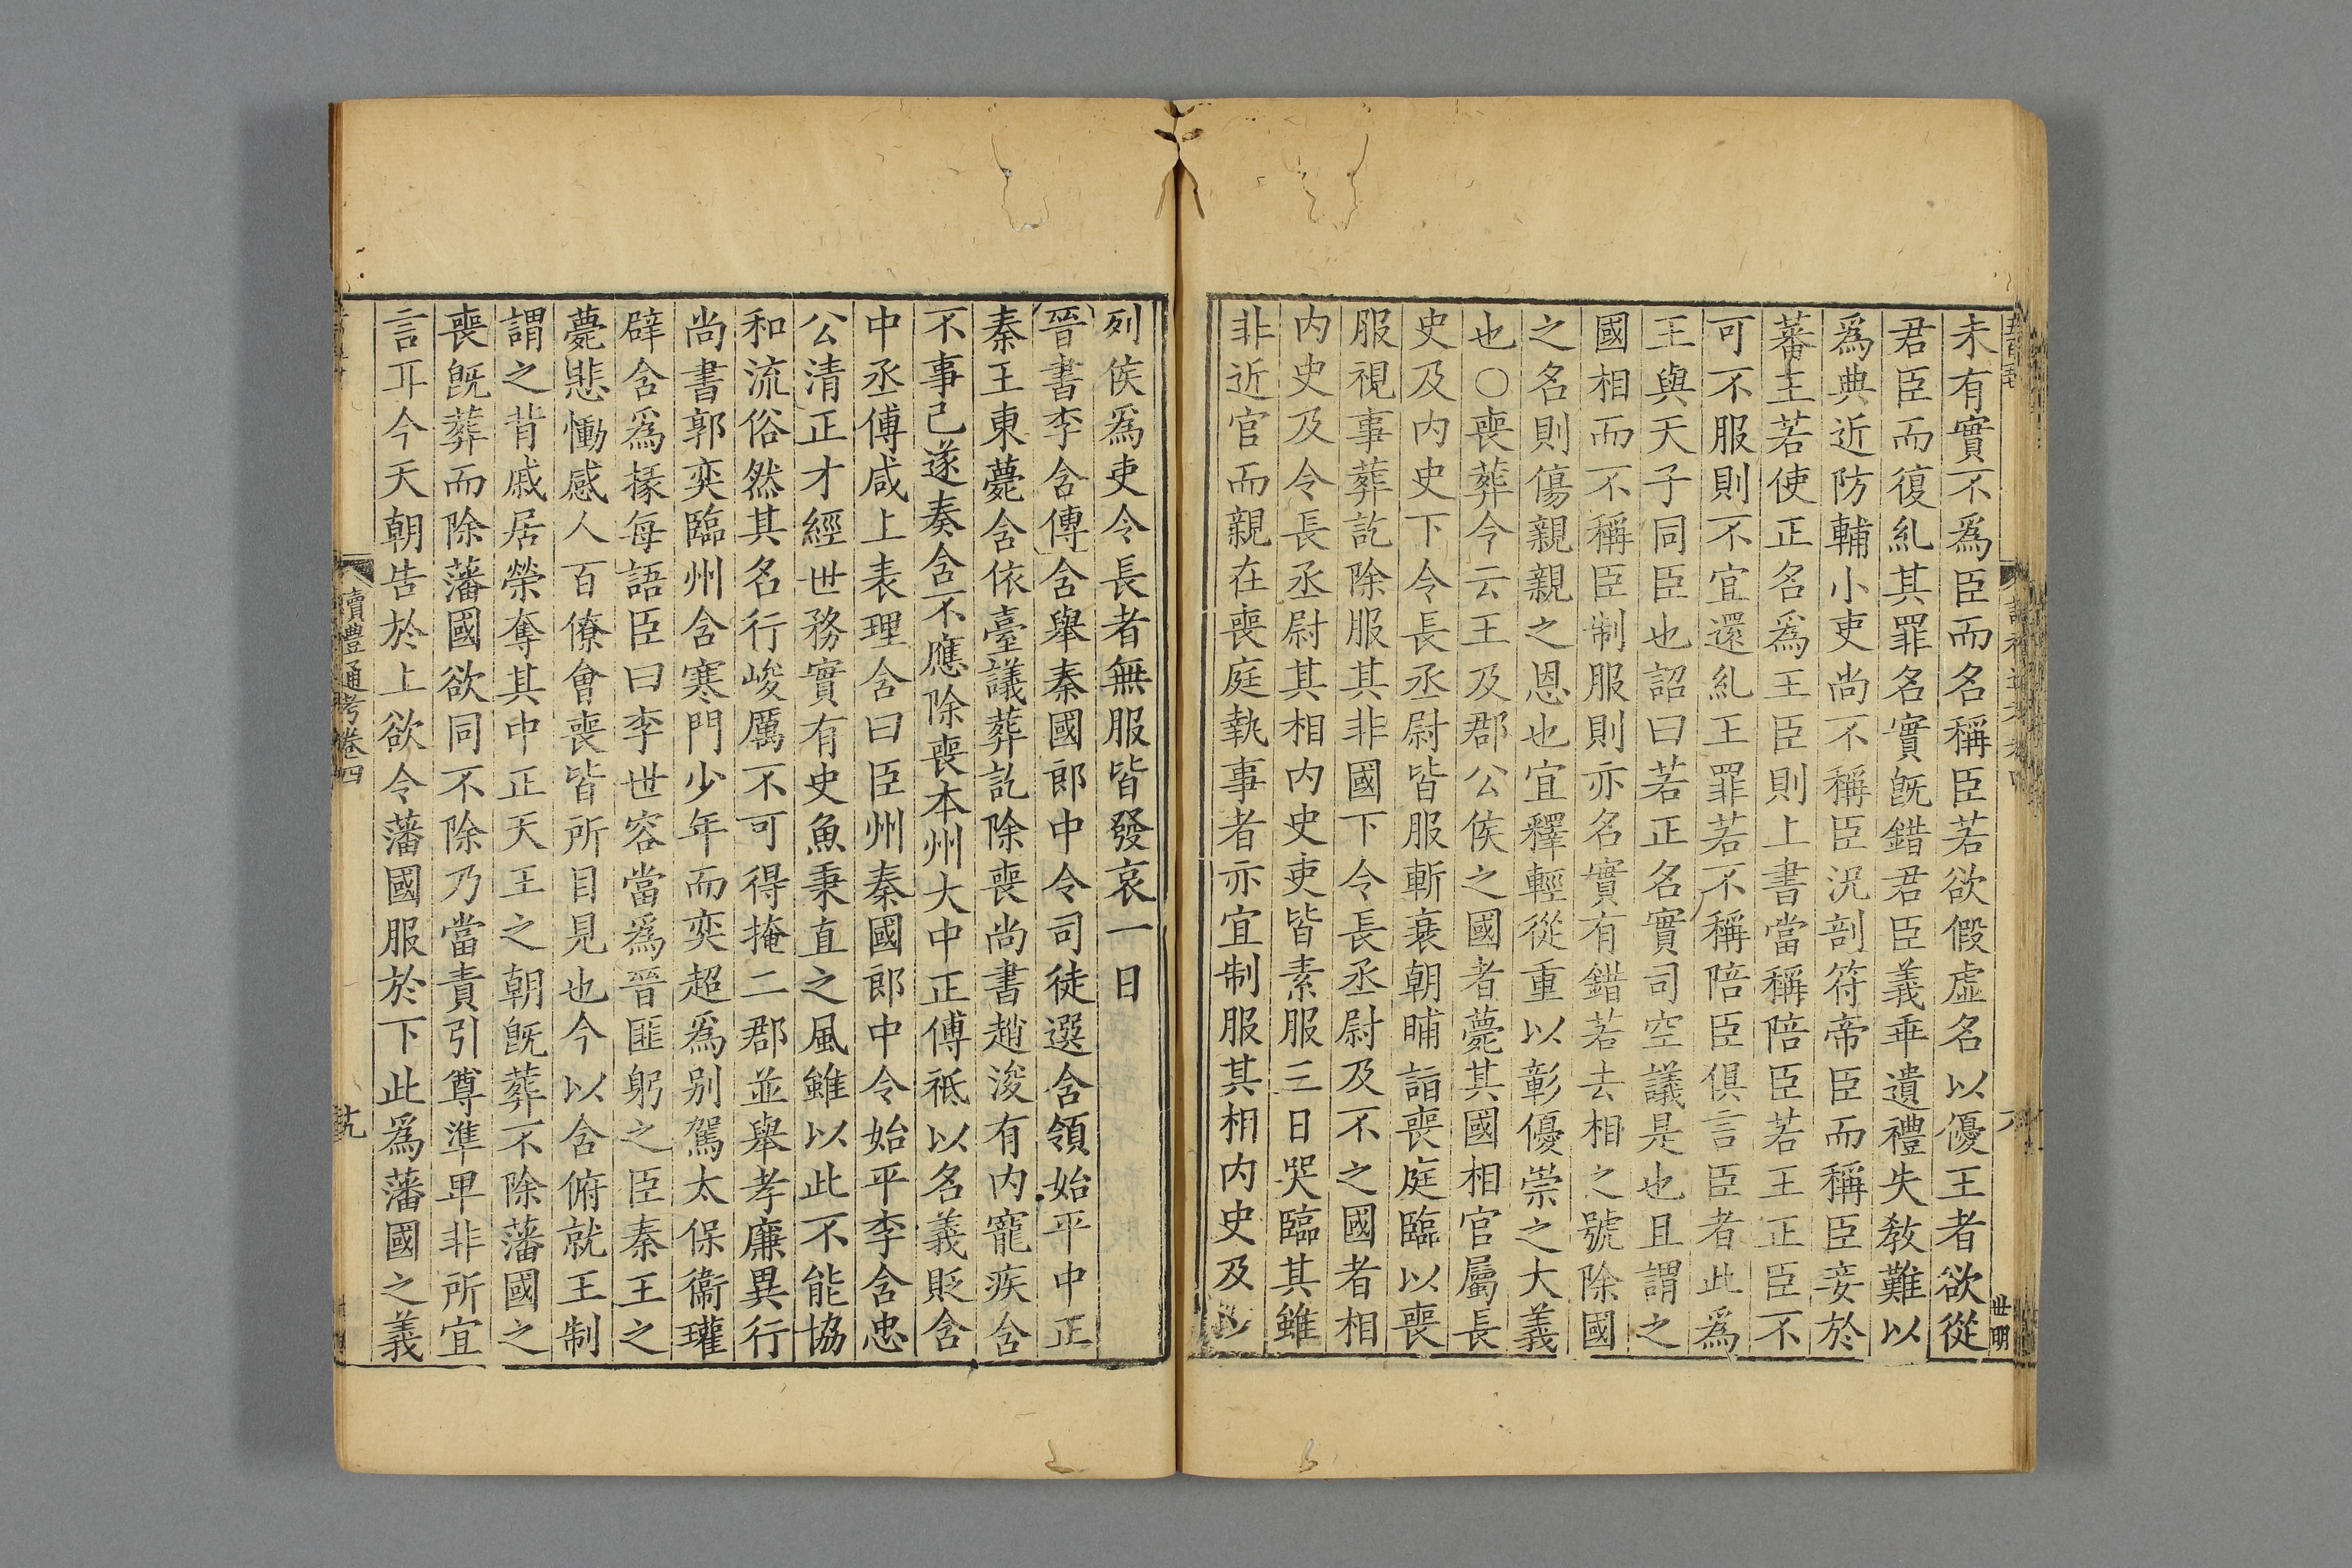 未有實不爲臣而名稱臣若欲假虚名以優王者欲從
君臣而復糺其罪名實旣錯君臣義乖遺禮失敎難以
爲典近防輔小吏尚不稱臣況剖符帝臣而稱臣妾於
蕃王若使正名爲王臣則上書當稱陪臣若王正臣不
可不服則不宜還糺王罪若不稱陪臣俱言臣者此爲
王與天子同臣也詔曰若正名實司空議是也且謂之
國相而不稱臣制服則亦名實有錯若去相之號除國
之名則傷親親之恩也宜釋輕從重以彰優崇之大義
也○喪葬令云王及郡公侯之國者薨其國相官屬長
史及内史下令長丞尉皆服斬衰朝晡詣喪庭臨以喪
服視事葬訖除服其非國下令長丞尉及不之國者相
内史及令長丞尉其相内史吏皆素服三日哭臨其雖
非近官而親在喪庭執事者亦宜制服其相内史及
世明
列侯爲吏令長者無服皆發哀一日
晉書李含傳含舉秦國郎中令司徒選含領始平中正
秦王東薨含依臺議葬訖除喪尚書趙浚有内寵疾含
不事己遂奏含不應除喪本州大中正傅祗以名義貶含
中丞傅咸上表理含曰臣州秦國郎中令始平李含忠
公清正才經世務實有史魚秉直之風雖以此不能協
和流俗然其名行峻厲不可得掩二郡並舉孝廉異行
尚書郭奕臨州含寒門少年而奕超爲别駕太保衞瓘
辟含爲掾每語臣曰李世容當爲晉匪躬之臣秦王之
薨悲慟感人百僚會喪皆所目見也今以含俯就王制
謂之背戚居榮奪其中正天王之朝旣葬不除藩國之
喪旣葬而除藩國欲同不除乃當責引尊準卑非所宜
言耳今天朝告於上欲令藩國服於下此爲藩國之義
讀禮通考卷四